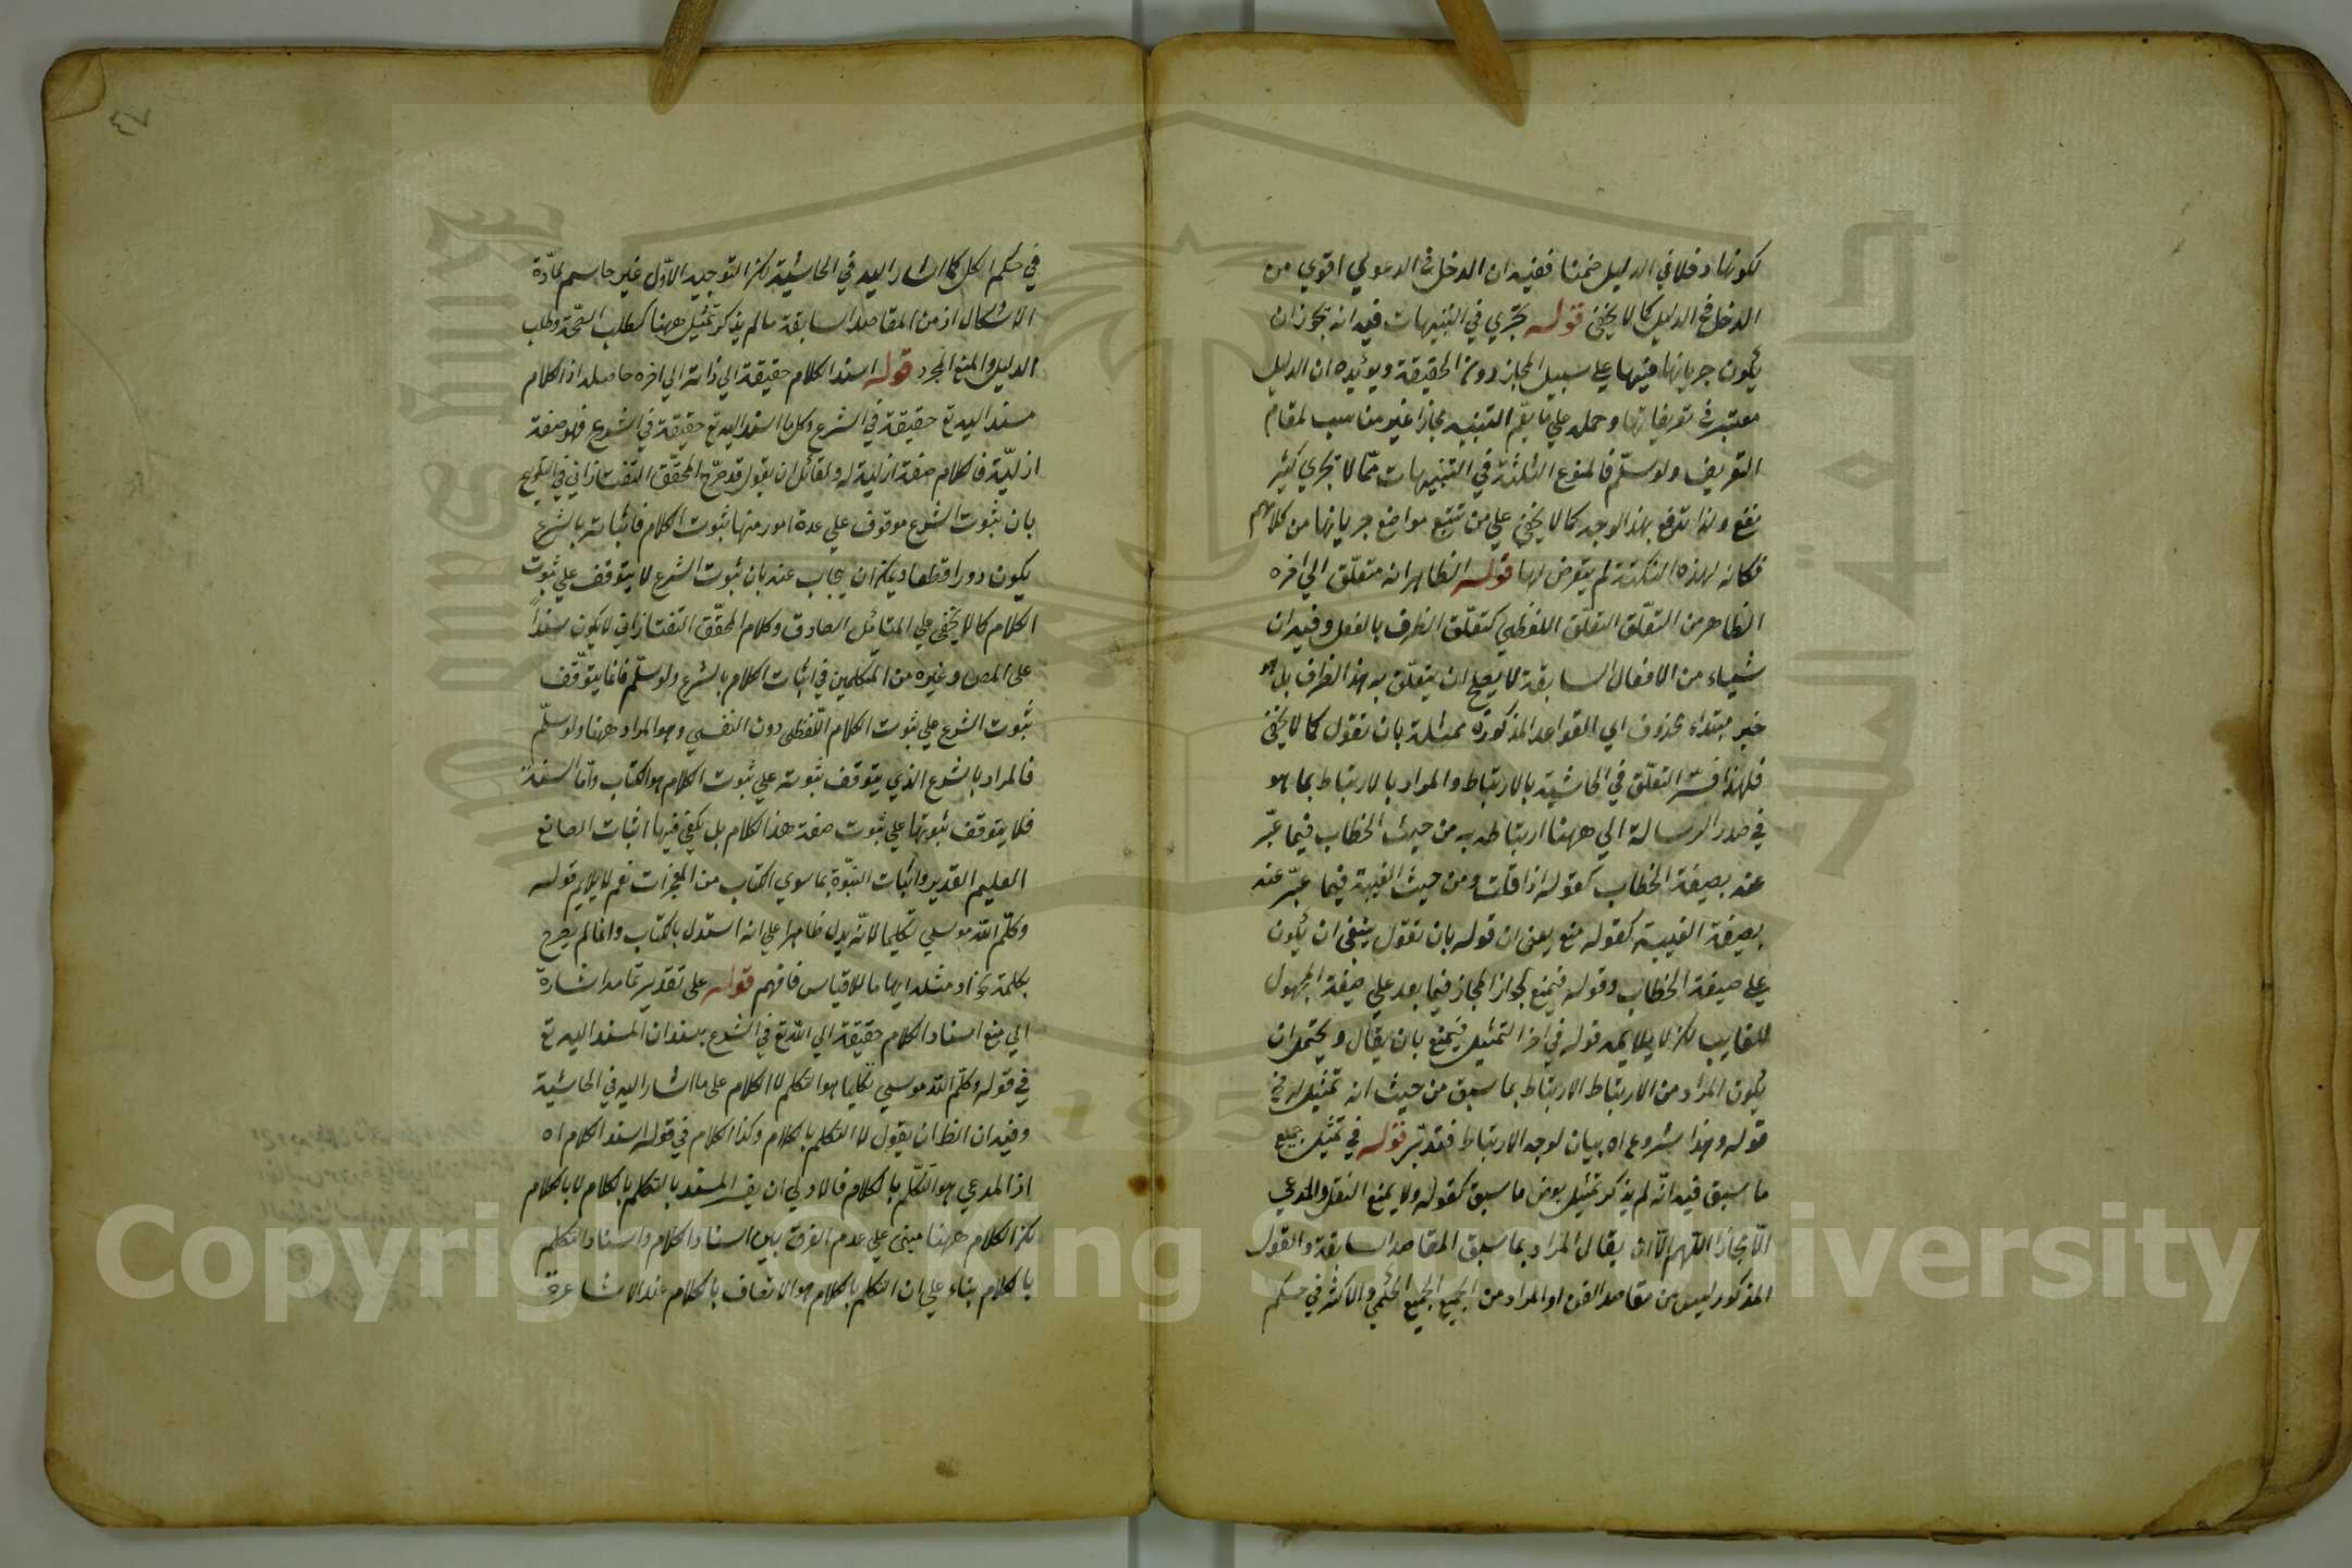 لكونها دخلا في الدليل ضمنا ففيه ان الدخل في الدعوي اقوي من
الدخل في الدليل كما لا يخفى قوله يجري في التنبيهات فيه انه يجوز ان
يكون جريانها فيها علي سبيل المجاز دون الحقيقة ويؤيده ان الدليل
معتبر في تعريفاتها وحمله علي ما يعم التنبيه مجازا غير مناسب لمقام
التعريف ولو سلّم فالمنوع الثلثة في التنبيهات ممّا لا تجري كثير
نفع ولذا تدفع بهذا الوجه كما لا يخفى علي من تتبع مواضع جريانها من كلامهم
فكانه لهذه النكتة لم يتعرض لها قوله الظاهر انه متعلّق الي اخره
الظاهر من التعلّق التعلّق اللفظي كتعلّق الظرف بالفعل وفيه ان
شيئا من الافعال السابقة لا يصح ان يتعلّق به هذا الظرف بل هو
خبر مبتداء محذوف اي القواعد المذكورة ممثلة بان نقول كما لا يخفى
فلهذا فسّر التعلّق في الحاشية بالارتباط والمراد بالارتباط بما هو
في صدر الرسالة الي ههنا ارتباطه به من حيث الخطاب فيما عبّر
عنه بصيغة الخطاب كقوله اذا قلت ومن حيث الغيبة فيما عبّر عنه
بصيغة الغيبة كقوله منع يعني ان قوله بان نقول ينبغي ان يكون
علي صيغة الخطاب وقوله فيمنع لجواز المجاز فيما بعد علي صيغة المجهول
للغايب لكن لا يلايمه قوله في اخر التمثيل فيمنع بان يقال ويحتمل ان
يكون المراد من الارتباط الارتباط بما سبق من حيث انه تمثيل له في
قوله وهذا شروع اه بيان لوجه الارتباط فتدبّر قوله في تمثيل جميع
ما سبق فيه انّه لم يذكر تمثيل بعض ما سبق كقوله ولا يمنع النقل والمدعي
الّا مجازا اللهم الّا ان يقال المراد بما سبق المقاصد السابقة والقول
المذكور ليس من مقاصد الفن او المراد من الجميع الجميع الحكمي والاكثر في حكم
في حكم الكل كما اشار اليه في الحاشية لكن التوجيه الاوّل غير حاسم لمادّة
الاشكال اذ من المقاصد السابقة ما لم يذكر تمثيل ههنا كطلب الصّحة وطلب
الدليل والمنع المجرد قوله اسند الكلام حقيقة الي ذاته الي اخره حاصله اذ الكلام
مسند اليه تع حقيقة في الشرع وكل ما اسند اليه تع حقيقة في الشرع فهو صفة
ازليّة فالكلام صفة ازلية له ولقائل ان يقول قد صرّح المحقّق التفتازاني في التلويح
بان ثبوت الشرع موقوف علي عدة امور منها ثبوت الكلام فاثباته بالشرع
يكون دورا قطعا ويمكن ان يجاب عنه بان ثبوت الشرع لا يتوقف علي ثبوت
الكلام كما لا يخفى علي المتائل الصادق وكلام المحقّق التفتازاني لا يكون سندا
على المص وغيره من المتكلمين في اثبات الكلام بالشرع ولو سلّم فانما يتوقّف
ثبوت الشرع علي ثبوت الكلام اللّفظي دون النفسي وهو المراد ههنا ولو سلّم
فالمراد بالشرع الذي يتوقف ثبوته علي ثبوت الكلام هو الكتاب وامّا السنة
فلا يتوقف ثبوتها علي ثبوت صفة هذا الكلام بل يكفي فيها اثبات الصانع
العليم القدير واثبات النبّوة بما سوي الكتاب من المعجزات نعم لا يلايم قوله
وكلّم اللّه موسي تكليما لانّه يدل ظاهرا علي انه استدل بالكتاب وانما لم يصرح
بكلمة نحو او مثله ايهاما للاقياس فافهم قوله على تقدير تمامه اشارة
الي منع اسناد الكلام حقيقة الي اللّه تع في الشرع بسند ان المسند اليه تع
في قوله وكلّم اللّه موسي تكليما هو التكلم لا الكلام على ما اشار اليه في الحاشية
وفيه ان الظ ان يقول لا التكلم بالكلام وكذا الكلام في قوله اسند الكلام اه
اذ المدعي هو التّكلّم بالكلام فالاولي ان يفسر المسند بالتكلم بالكلام لا بالكلام
لكن الكلام ههنا مبني علي عدم الفرق بين اسناد الكلام واسناد التكلم
بالكلام بناء علي ان التكلم بالكلام هو الاتصاف بالكلام عند الاشاعرة
Copyright © King Saud University
1957